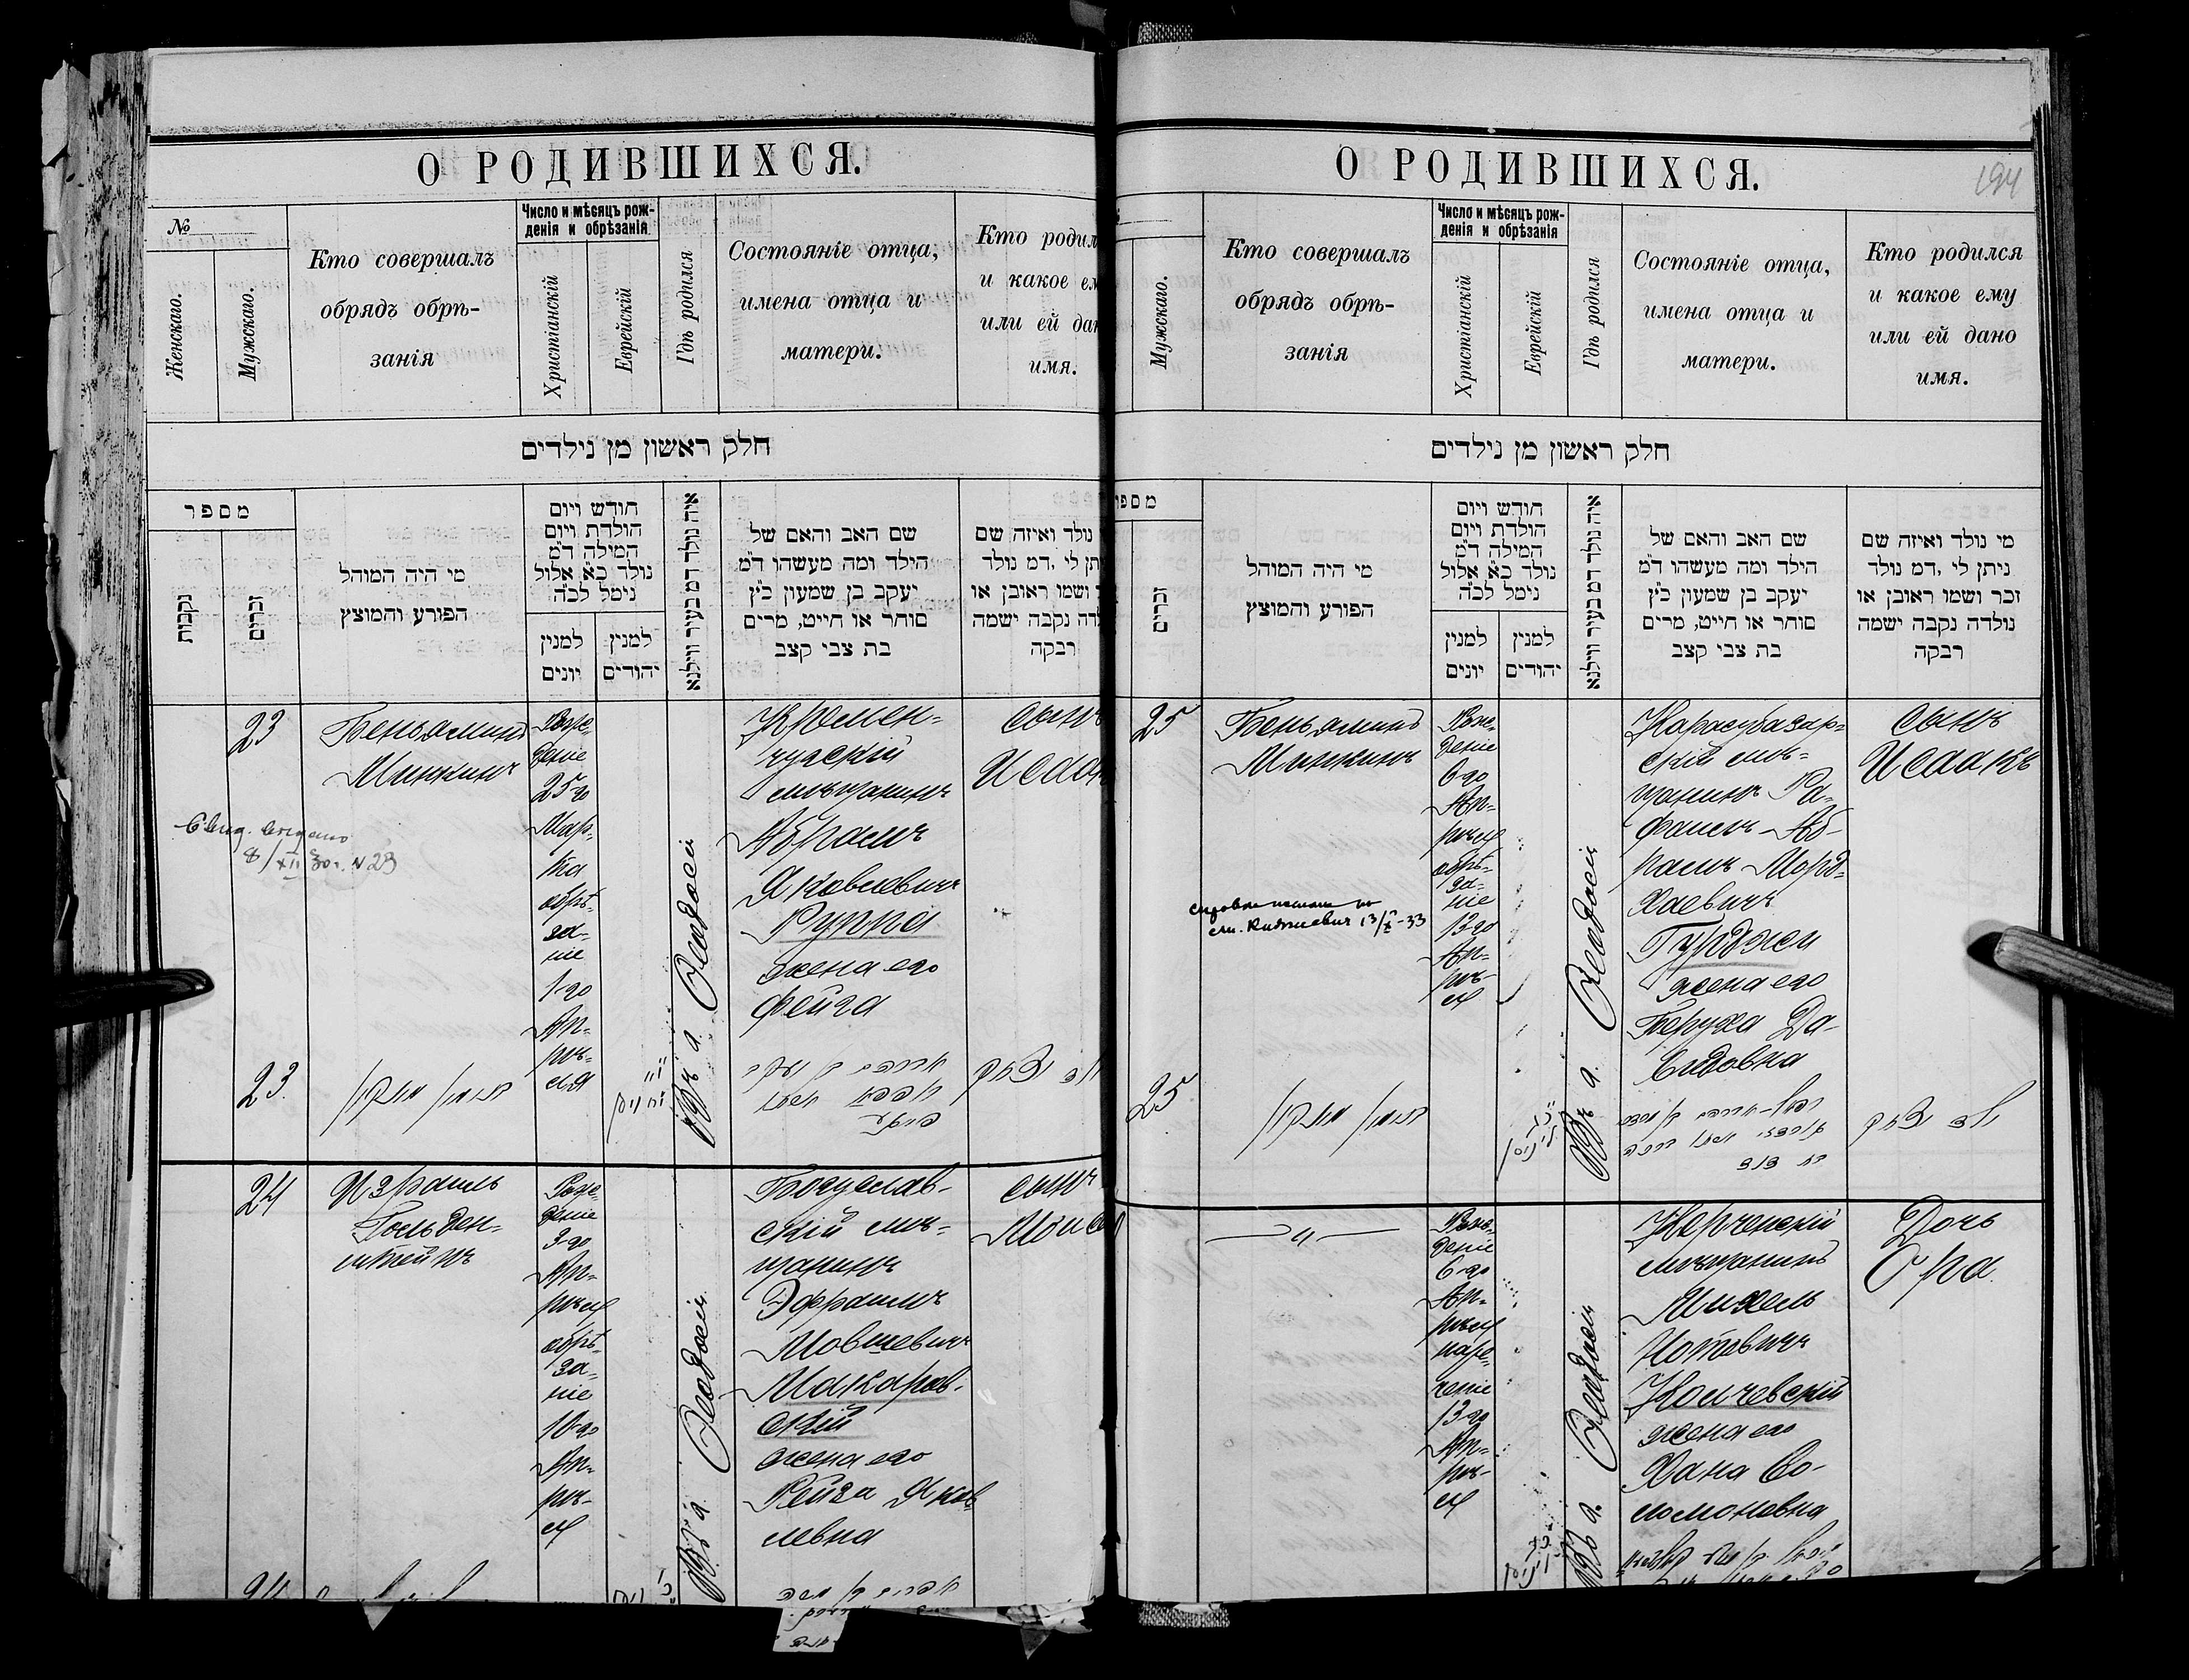 О РОДИВШИХСЯ.
№
Женскаго.
Мужскаго.
Кто совершалъ
обрядъ обрѣ-
занія
Число и мѣсяцъ рож-
денія и обрѣзанія
Христіанскій
Еврейскій
Гдѣ родился
Состояніе отца,
имена отца и
матери.
Кто родил
и какое ем
или ей дан
имя.
חלק ראשון מן נילדים
מספר
נקבות
זכרים
מי היה המוהל
הפורע והמוצץ
חודש ויום
הולדת ויום
המילה ד״מ
נולד כ״א אלול
נימל לכ״ה
למנין
יונים
למנין
יהודים
איה נולד דמ בעיר ווילנא
שם האב והאם של
הילד ומה מעשהו ד״מ
יעקב בן שמעון כ״ץ
סוחר או חייט, מרים
בת צבי קצב
נולד ואיזה שם
תן לי ,דמ נולד
ושמו ראובן או
לדה נקבה ישמה
רבקה
23
Беньяминъ
Минкинъ
Рож-
деніе
25-го
Мар-
та
обрѣ-
за-
ніе
1-го
Ап-
рѣ-
ля
Въ г. Ѳеодосіи
Кремен-
чугскій
мѣщанинъ
Абрамъ
Яковлевичъ
Руппа
жена его
Фейга
сынъ
Исаак
8/XII 30г. N 23
23.
24
Израиль
Гольден-
штейнъ
Рож-
деніе
3-го
Ап-
рѣля
обрѣ-
за-
ніе
10-го
Ап-
рѣ-
ля
Въ г. Ѳеодосіи
Богуслав-
скій мѣ-
щанинъ
Эфраимъ
Мовшевичъ
Макаров-
скій
жена его
Рейза Яков
левна
сынъ
Моисе
24
О РОДИВШИХСЯ.
194
Мужскаго.
Кто совершалъ
обрядъ обрѣ-
занія
Число и мѣсяцъ рож-
денія и обрѣзанія
Христіанскій
Еврейскій
Гдѣ родился
Состояніе отца,
имена отца и
матери.
Кто родился
и какое ему
или ей дано
имя.
חלק ראשון מן נילדים
מספר
זכרים
מי היה המוהל
הפורע והמוצץ
חודש ויום
הולדת ויום
המילה ד״מ
נולד כ״א אלול
נימל לכ״ה
למנין
יונים
למנין
יהודים
איה נולד דמ בעיר ווילנא
שם האב והאם של
הילד ומה מעשהו ד״מ
יעקב בן שמעון כ״ץ
סוחר או חייט, מרים
בת צבי קצב
מי נולד ואיזה שם
ניתן לי ,דמ נולד
זכר ושמו ראובן או
נולדה נקבה ישמה
רבקה
25
Беньяминъ
Минкинъ
Рож-
деніе
6-го
Ап-
рѣля
обрѣ-
за-
ніе
13-го
Ап-
рѣ-
ля
Въ г. Ѳеодосіи
Карасубазар-
скій мѣ-
щанинъ Ра-
фаилъ-Аб-
рамъ Морд-
хаевичъ
Гурджи
жена его
Беруха Да-
видовна
сынъ
Исаакъ
13/X-33
25
—"—
Рож-
деніе
6-го
Ап-
рѣля
наре-
ченіе
13-го
Ап-
рѣ-
ля
Въ г. Ѳеодосіи
Керченскій
мѣщанинъ
Михель
Нотовичъ
Колчевскій
жена его
Хана Со-
ломоновна
Дочь
Сра.